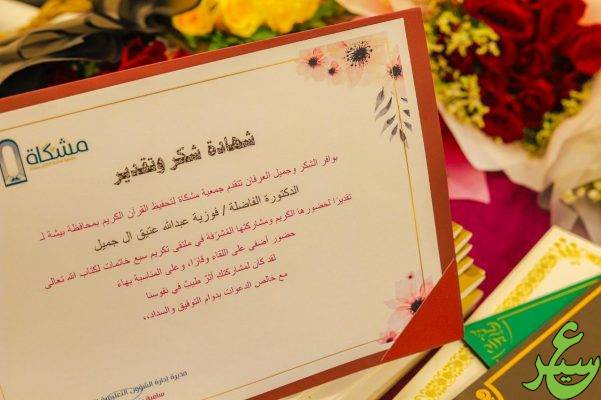 مشكاة
شهادة شكر وتقدير
بوافر الشكر وجميل العرفان تتقدم جمعية مشكاة لتحفيظ القرآن الكريم بمحافظة بيشة لـ
الدكتورة الفاضلة / فوزية عبدالله عتيق ال جميل
تقديرًا لحضورها الكريم ومشاركتها المُشرّفة في ملتقى تكريم سبع خاتمات لكتاب الله تعالى
حضور أضفى على اللقاء وقارًا، وعلى المناسبة بهاءً
لقد كان لمشاركتك أثرٌ طيبٌ في نفوسنا
مع خالص الدعوات بدوام التوفيق والسداد،،
مديرة إدارة الشؤون التعليمية